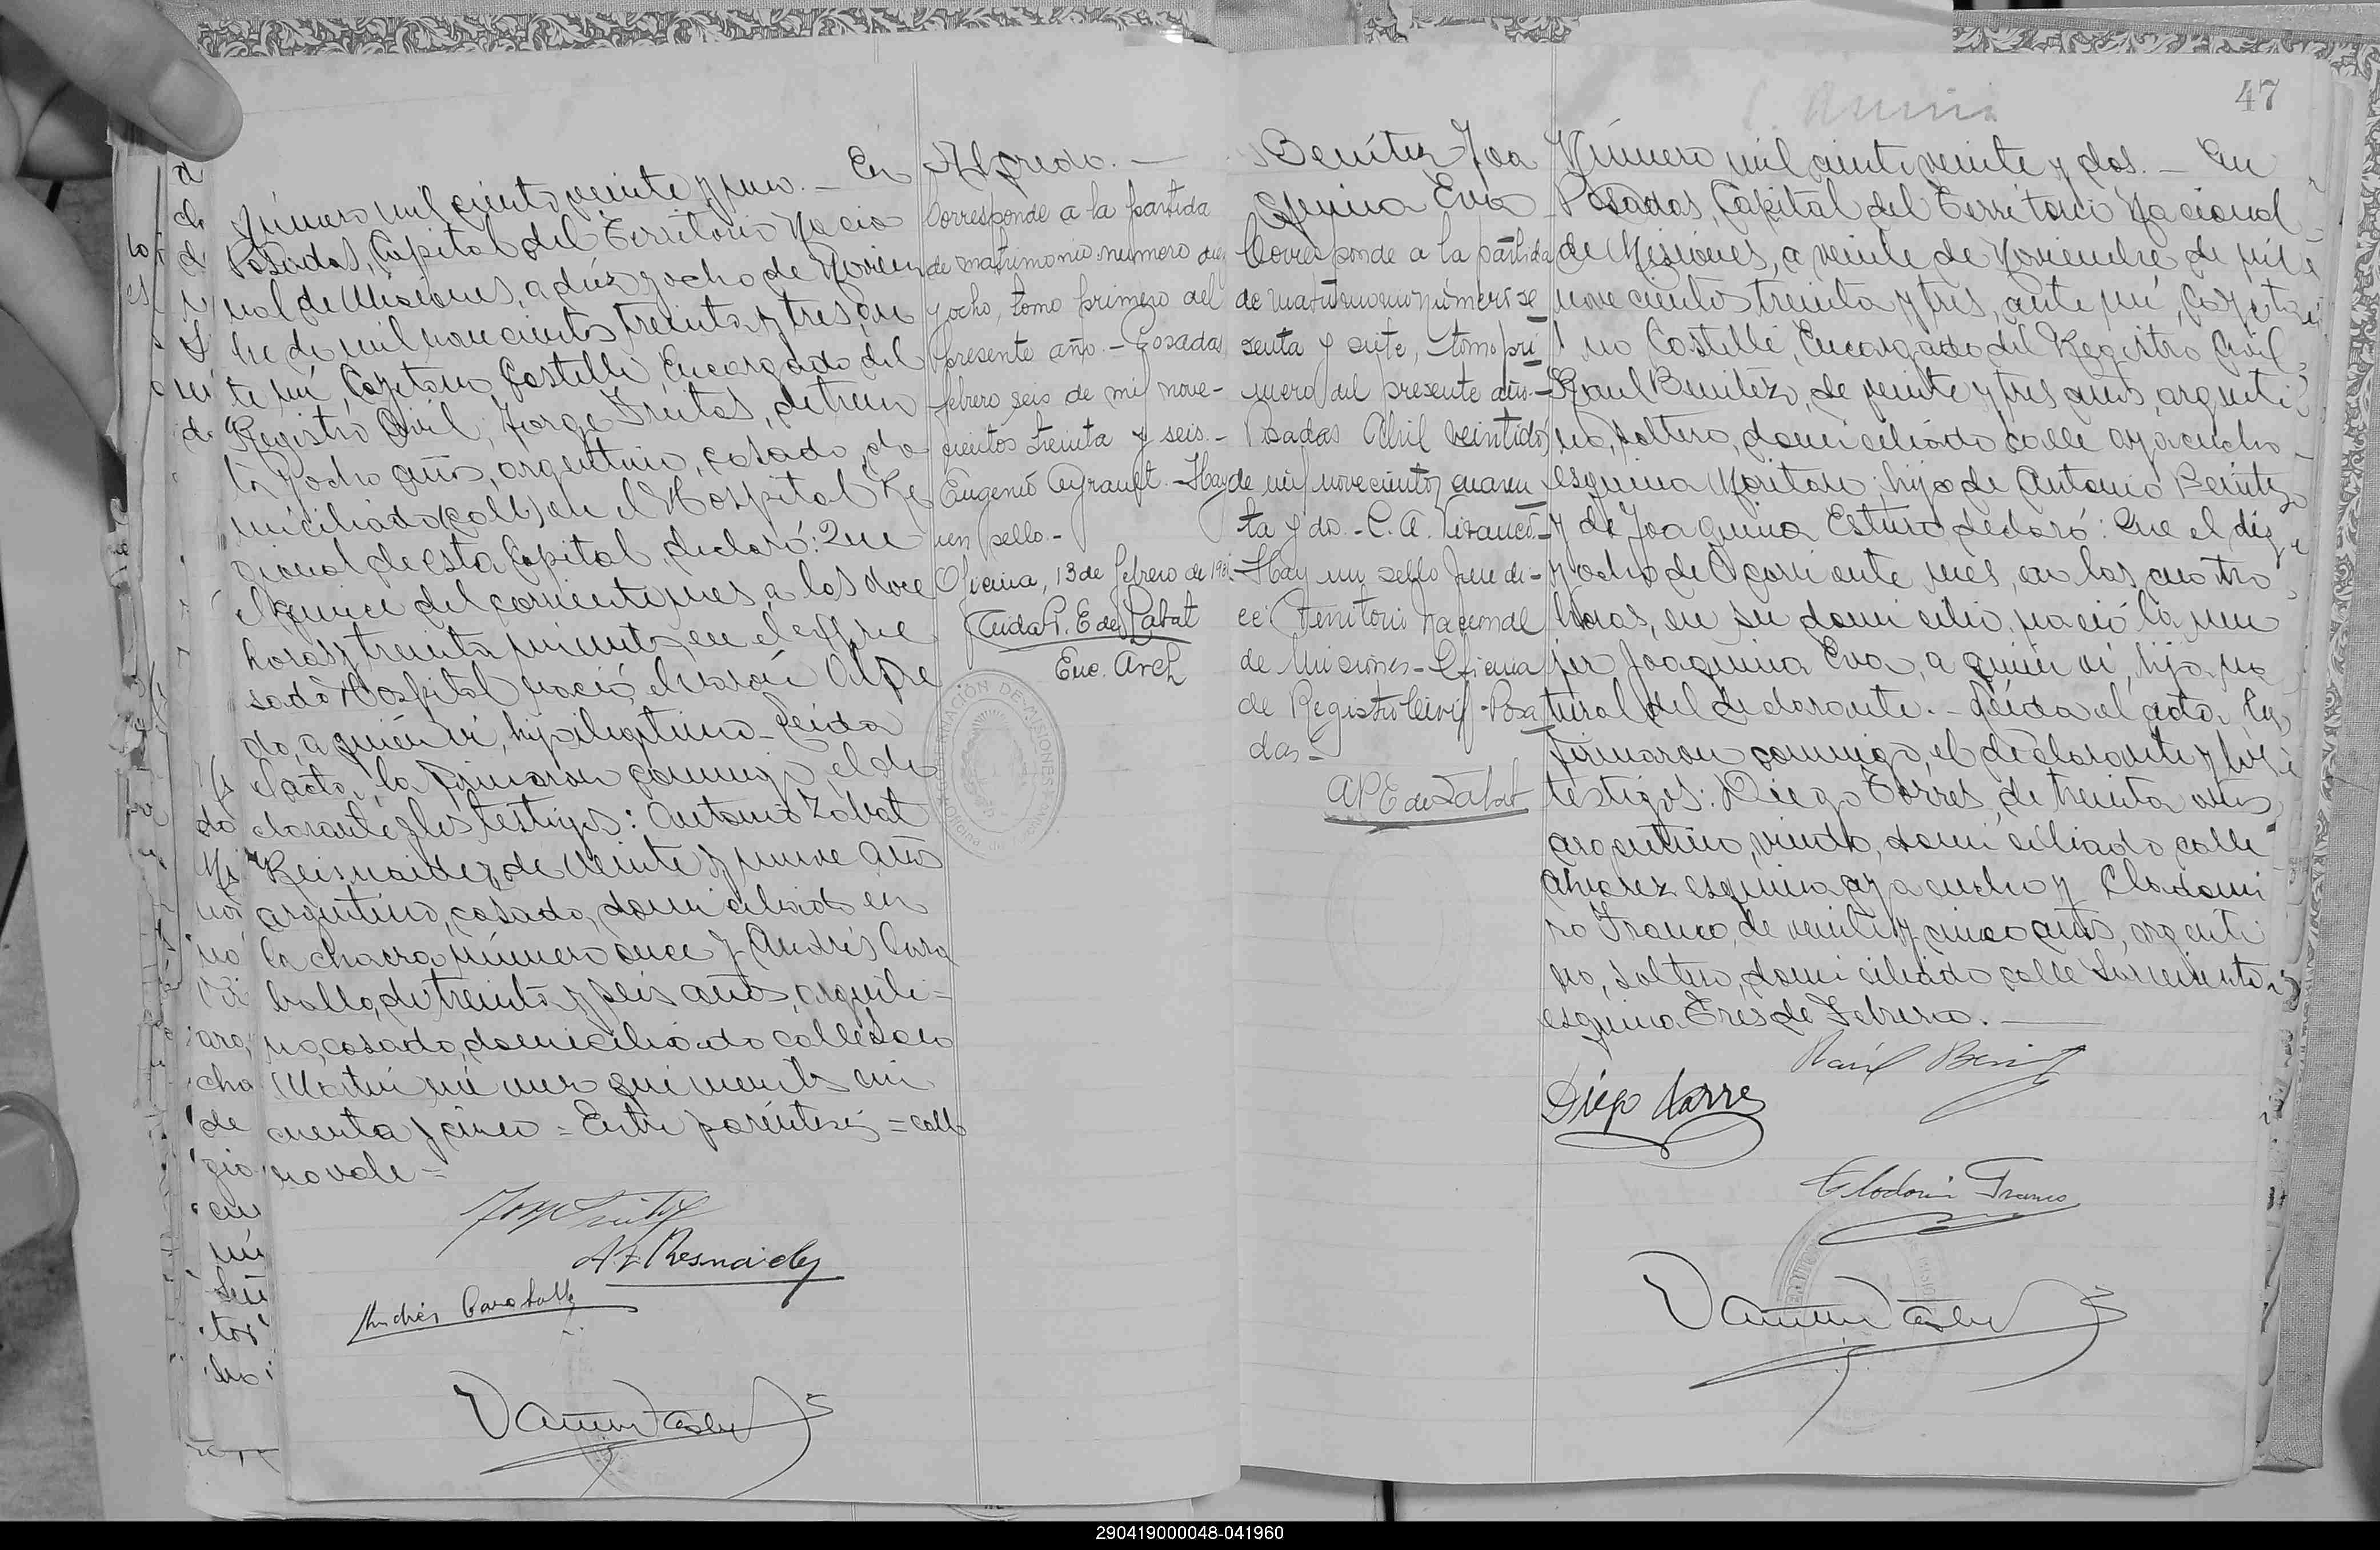 47
Número mil ciento veinte y uno. — En
Posadas, Capital del Territorio Nacio
nal de Misiones, a diez y ocho de Noviem
bre de mil novecientos treinta y tres, an
te mí, Cayetano Castelli, Encargado del
Registro Civil; Jorge Freitas, de trein
ta y ocho años, argentino, casado, do
miciliado (calle) en el Hospital Re
gional de esta Capital, declaró: Que
el quince del corriente mes, a las doce
horas y treinta minutos, en el expre
sado Hospital nació el varón Alfre
do, a quien ví, hijo ilegítimo. Leida
el acta, la firmaron conmigo, el de
clarante y los testigos: Antonio Zabat
Reisnaidez, de veinte y nueve años
argentino, casado, domiciliado en
la chacra número once y Andrés Cara
ballo, de treinta y seis años, argenti-
no, casado, domiciliado calle San
Martin número quinientos cin
cuenta y cinco = Entre paréntesis = calle
no vale =
Andrés Caraballo
Alfredo. —
Corresponde a la partida
de matrimonio numero diez
y ocho, tomo primero del
presente año. - Posadas
febrero seis de mil nove-
cientos treinta y seis. -
Eugenio Ayrault. - Hay
un sello. -
Oficina, 13 de febrero de 193
Enc. Arch
GOBERNACIÓN DE MISIONES
Benítez Joa
quina Eva
Corresponde a la partida
de matrimonio número se
senta y siete, tomo pri
mero del presente año. -
Posadas Abril veintidos
de mil novecientos cuaren
ta y dos. - C. A.
Hay un sello que di-
ce: Territorio Nacional
de Misiones - Oficina
de Registro Civil - Posa
das -
A P E de Zabat
Número mil ciento veinte y dos. — En
Posadas, Capital del Territorio Nacional
de Misiones, a veinte de Noviembre de mil
novecientos treinta y tres, ante mí, Cayeta
no Castelli, Encargado del Registro Civil
Raul Benitez, de veinte y tres años, argenti
no, soltero, domiciliado calle Ayacucho
esquina Moritan; hijo de Antonio Benitez
y de Joaquina Esturo declaró: Que el diez
y ocho del corriente mes, en las cuatro
horas, en su domicilio, nació la mu
jer Joaquina Eva, a quien ví, hija na
tural del declarante. - Leída el acta, la
firmaron conmigo, el declarante y los
testigos: Diego Torres, de treinta años
argentino, viudo, domiciliado calle
Alvarez esquina Ayacucho y Clodomi
ro Franco, de veinte y cinco años, argenti
no, soltero, domiciliado calle Sarmiento
esquina Tres de Febrero. —
Raúl Benitez
Diego Torres
Clodomir Franco
290419000048-041960